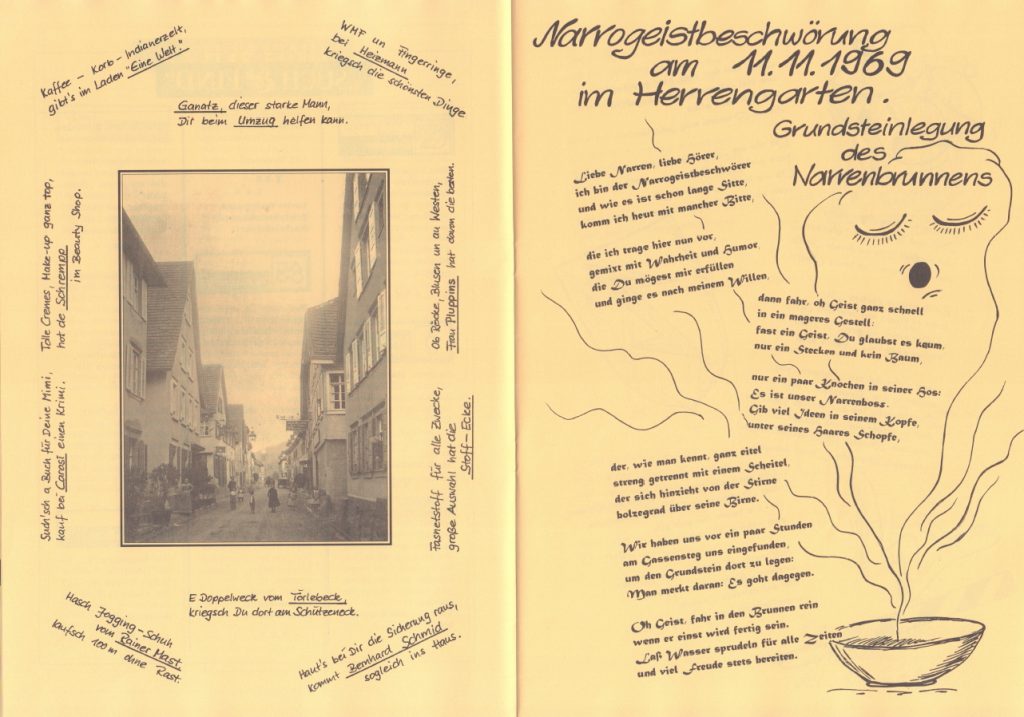 Kaffee – Korb – Indianerzelt,
gibt's im Laden "Eine Welt."
WMF un Fingerringe,
bei Heizmann
kriegsch die schönsten Dinge
Ganatz, dieser starke Mann,
Dir beim Umzug helfen kann.
Tolle Cremes, Make-up ganz top,
hat de Schrempp
im Beauty Shop.
Ob Röcke, Blusen un au Westen,
Frau Pluppins hat davon die besten.
Such'sch a Buch für Deine Mimi,
kauf bei Carosi einen Krimi.
Fasnetstoff für alle Zwecke,
große Auswahl hat die
Stoff-Ecke.
E Doppelweck vom Törlebeck,
kriegsch Du dort am Schützeneck.
Hasch Jogging-Schuh
vom Rainer Mast
laufsch 100 m ohne Rast.
Haut's bei Dir die Sicherung raus,
kommt Bernhard Schmid
sogleich ins Haus.
Narrogeistbeschwörung
am 11.11.1969
im Herrengarten.
Grundsteinlegung
des
Narrenbrunnens
Liebe Narren, liebe Hörer,
ich bin der Narrogeistbeschwörer
und wie es ist schon lange Sitte,
komm ich heut mit mancher Bitte,
die ich trage hier nun vor,
gemixt mit Wahrheit und Humor,
die Du mögest mir erfüllen
und ginge es nach meinem Willen,
dann fahr, oh Geist ganz schnell
in ein mageres Gestell:
fast ein Geist, Du glaubst es kaum,
nur ein Stecken und kein Baum,
nur ein paar Knochen in seiner Hos:
Es ist unser Narrenbosz.
Gib viel Ideen in seinem Kopfe,
unter seines Haares Schopfe,
der, wie man kennt, ganz eitel
streng getrennt mit einem Scheitel,
der sich hinzieht von der Stirne
bolzegrad über seine Birne.
Wir haben uns vor ein paar Stunden
am Gassensteg uns eingefunden,
um den Grundstein dort zu legen:
Man merkt daran: Es goht dagegen.
Oh Geist, fahr in den Brunnen rein
wenn er einst wird fertig sein.
Laß Wasser sprudeln für alle Zeiten
und viel Freude stets bereiten.